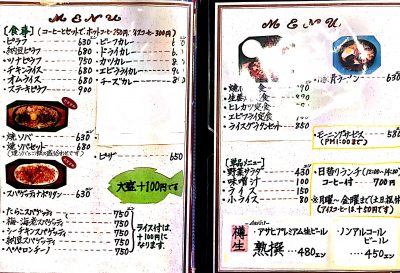 MENU
[食事] (コーヒーセットで、ホットコーヒー250円、アイスコーヒー300円)
・ピラフ 630
・納豆ピラフ 680
・ツナピラフ 750
・チキンライス 680
・オムライス 750
・ステーキピラフ 900
・ビーフカレー
・ドライカレー
・カツカレー
・エビフライカレー
・チーズカレー
・焼ソバ 580
・焼ソバセット 680
・ピザ 650
・スパゲッティナポリタン 630
大盛+100円です
・たらこスパゲッティ 750
・梅・海老スパゲッティ 750
・シーチキンスパゲッティ 750
・納豆スパゲッティ 750
・ペペロンチーノ 750
ライス付は、
+100円に
なります。
MENU
ラーメン 630
・ヒレカツ定食
・エビフライ定食
・ライスグラタンセット 850
・モーニングサービス 580
[単品メニュー]
・野菜サラダ 430
・味噌汁 100
・ライス 150
・小ライス 80
・日替りランチ (12:00〜14:00)
コーヒー付 700円
※月曜〜金曜まで
樽生
・アサヒプレミアム生ビール
熟撰 ・・・480エン
・ノンアルコール
ビール
・・・450エン